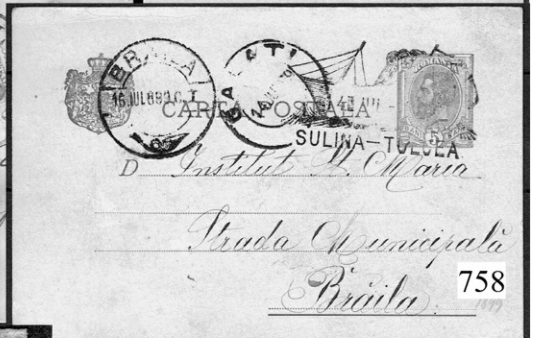 BRAILA
16 JUL 89
GALATI
CARTA POSTALA
ROMANIA
5
SULINA-TULCEA
D Institut St. Maria
Strada Municipală
Brăila.
758